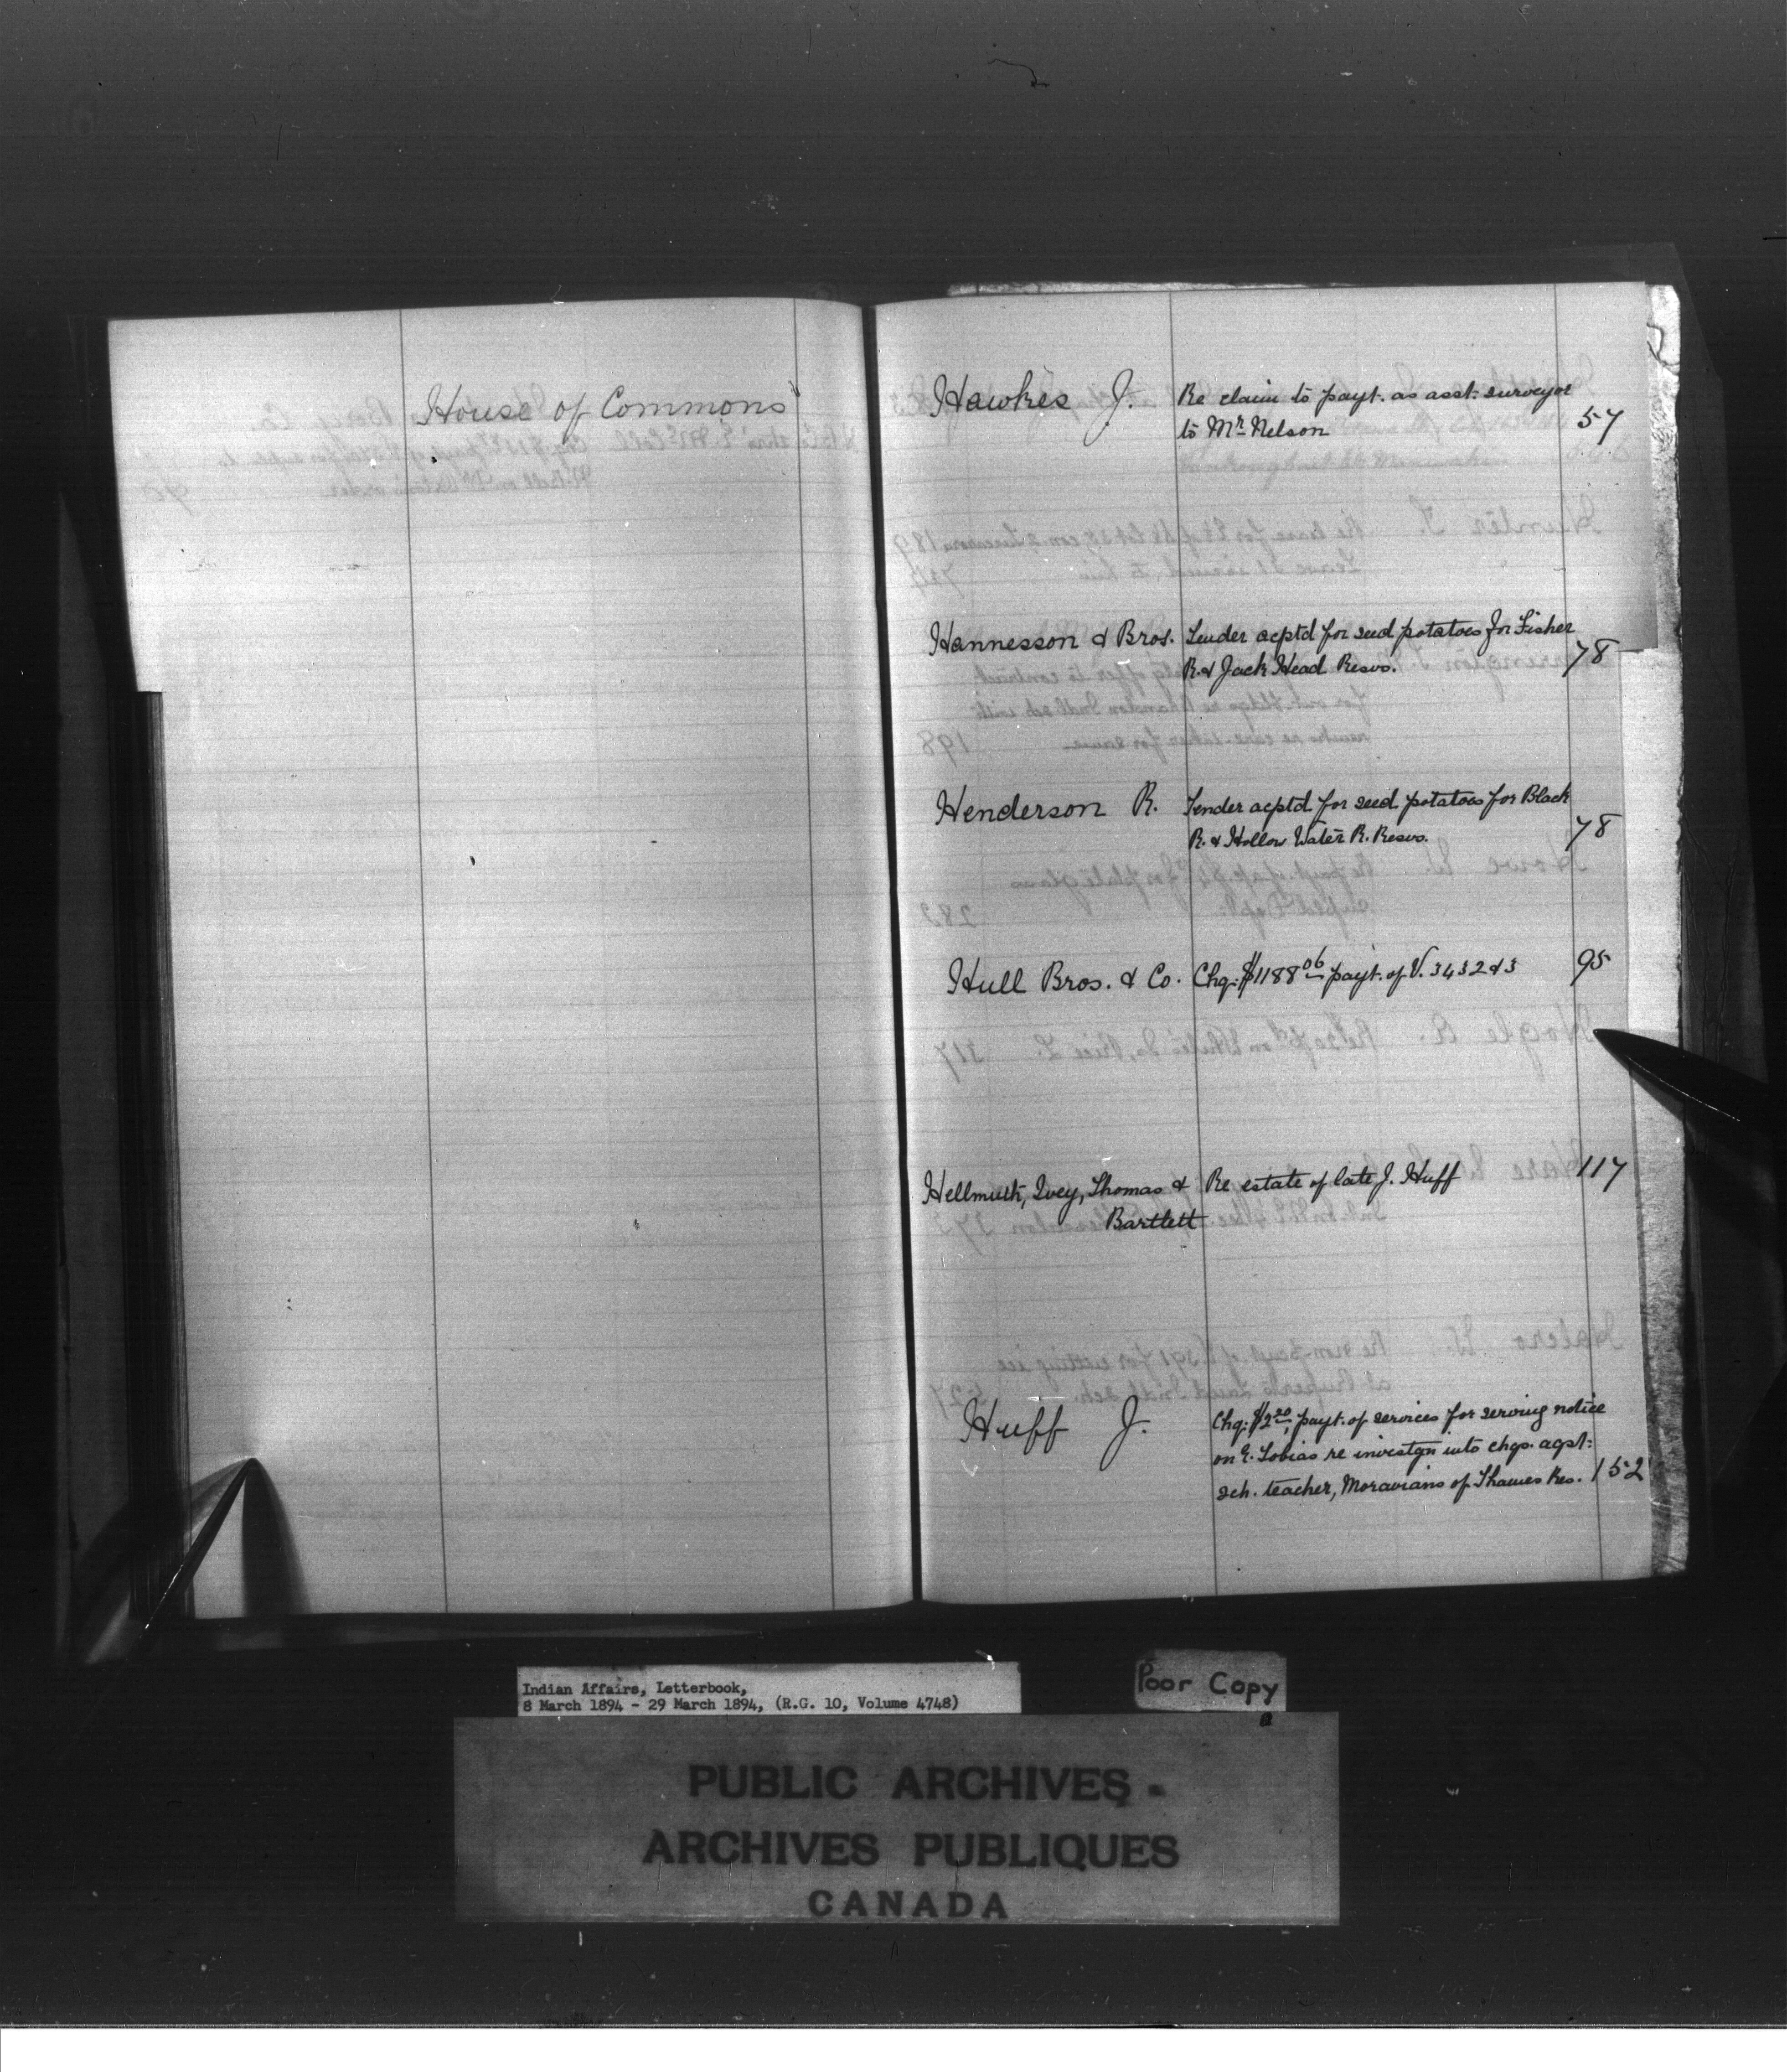 House of Commons
Hawkes J. Re claim to payt. as asst. surveyor
to Mr. Nelson 57
Hannesson & Bros. Tender acptd for seed potatoes for Fisher
R. & Jack Head Resvs. 78
Henderson R. Tender acptd for seed potatoes for Black
R. & Hollow Water R. Resvs. 78
Hull Bros. & Co. Chq. $1188 06 payt. of V. 3432 & 3 95
Hellmuth, Ivey, Thomas & Re estate of late J. Huff 117
Bartlett
Huff J. Chq. $2 20, payt. of services for serving notice
on E. Tobias re investgn into chgs. agst.
sch. teacher, Moravians of Thames Res. 152
Indian Affairs, Letterbook,
8 March 1894 - 29 March 1894, (R.G. 10, Volume 4748)
Poor Copy
PUBLIC ARCHIVES
ARCHIVES PUBLIQUES
CANADA